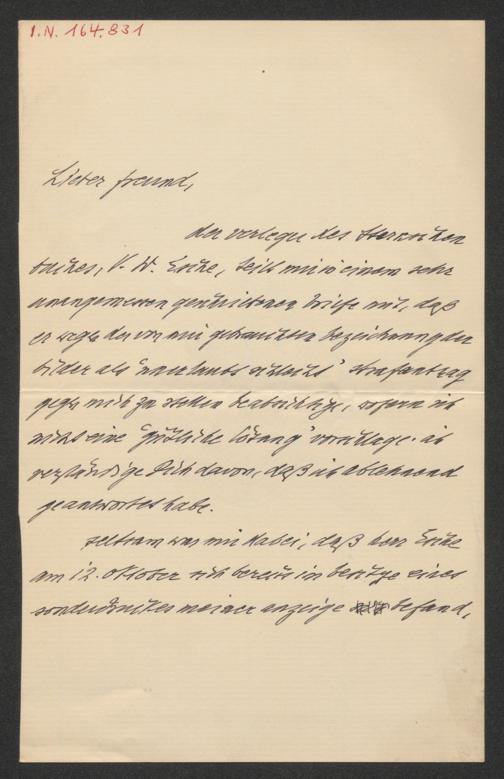 I.N. 164.831
Lieber freund,
der verleger des
buches, V. W. Esche, teilt mir in einem sehr
unangemessen gehaltenen briefe mit, daß
er wegen der von mir gebrauchten bezeichnung der
bilder als "namenlos schlecht" strafantrag
gegen mich zu stellen beabsichtige, sofern ich
nicht eine "gütliche lösung" vorschlage. ich
verständige Dich davon, daß ich ablehnend
geantwortet habe.
seltsam war mir dabei, daß herr Esche
am 12. oktober sich bereits im besitze eines
sonderdruckes meiner anzeige befand,